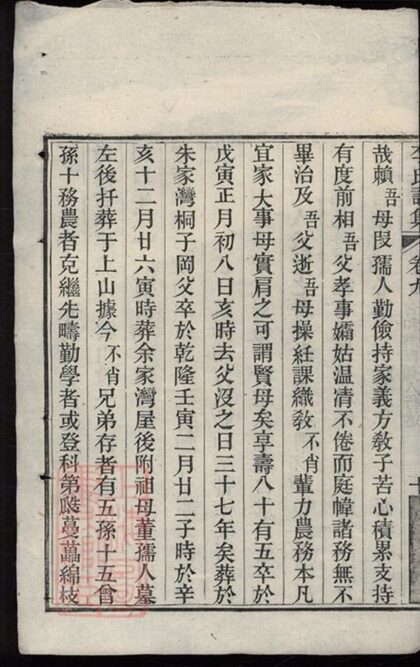 哉賴吾母叚孺人勤儉持家義方教子苦心積累支持
有度前相吾父孝事孀姑温凊不倦而庭幃諸務無不
畢治及吾父逝吾母操紝課織教不肖輩力農務本凡
宜家大事母實肩之可謂賢母矣享壽八十有五卒於
戊寅正月初八日亥時去父沒之日三十七年矣葬於
朱家灣桐子岡父卒於乾隆壬寅二月廿二子時於辛
亥十二月廿六寅時葬余家灣屋後附祖母董孺人墓
左後扦葬于上山據今不肖兄弟存者有五孫十五曾
孫十務農者克繼先疇勤學者或登科第瓞蔓藟綿枝